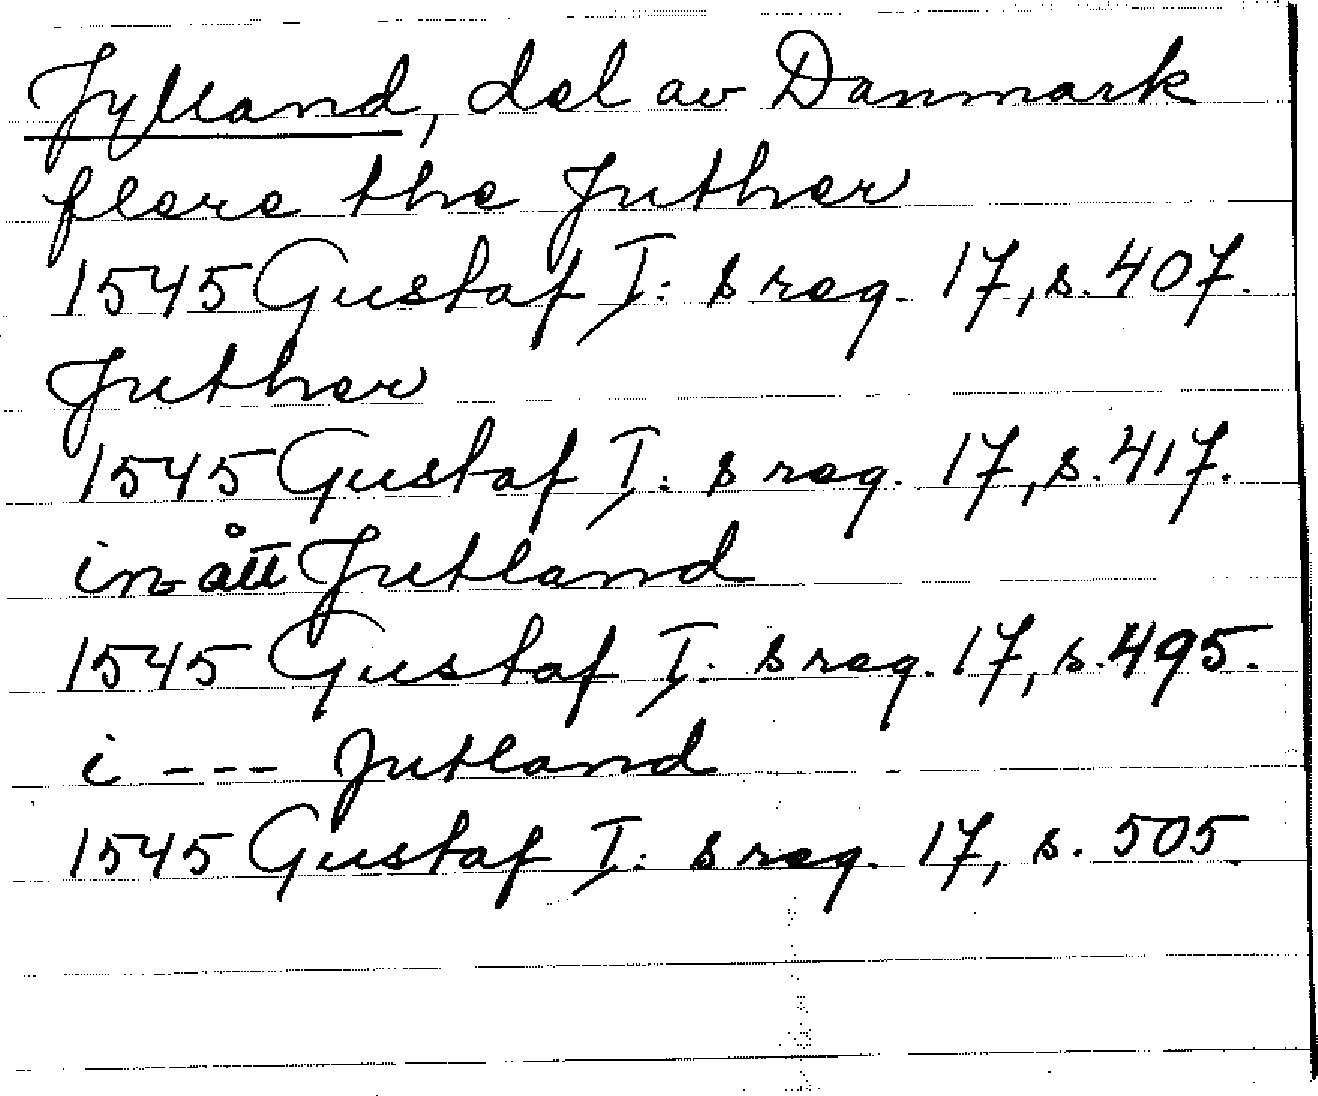 Jylland, del av Danmark
flere the Juther
1545 Gustaf I: s reg. 17, s. 407.
Juther
1545 Gustaf I: s reg. 17, s. 417.
in ått Jutland
1545 Gustaf I: s reg. 17, s. 495.
i --- Jutland
1545 Gustaf I: s reg. 17, s. 505.